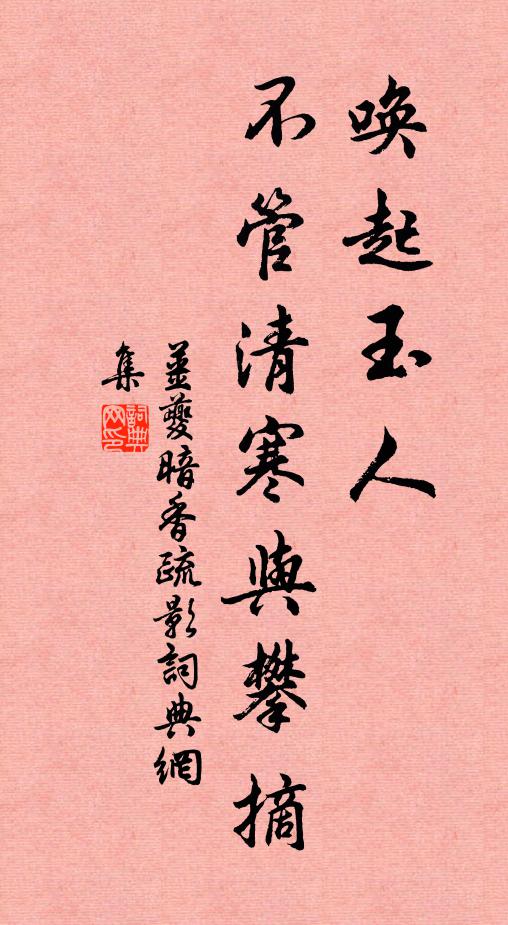 唤起玉人
不管清寒與攀摘
姜夔暗香疏影詞典網
集
詞典
网印